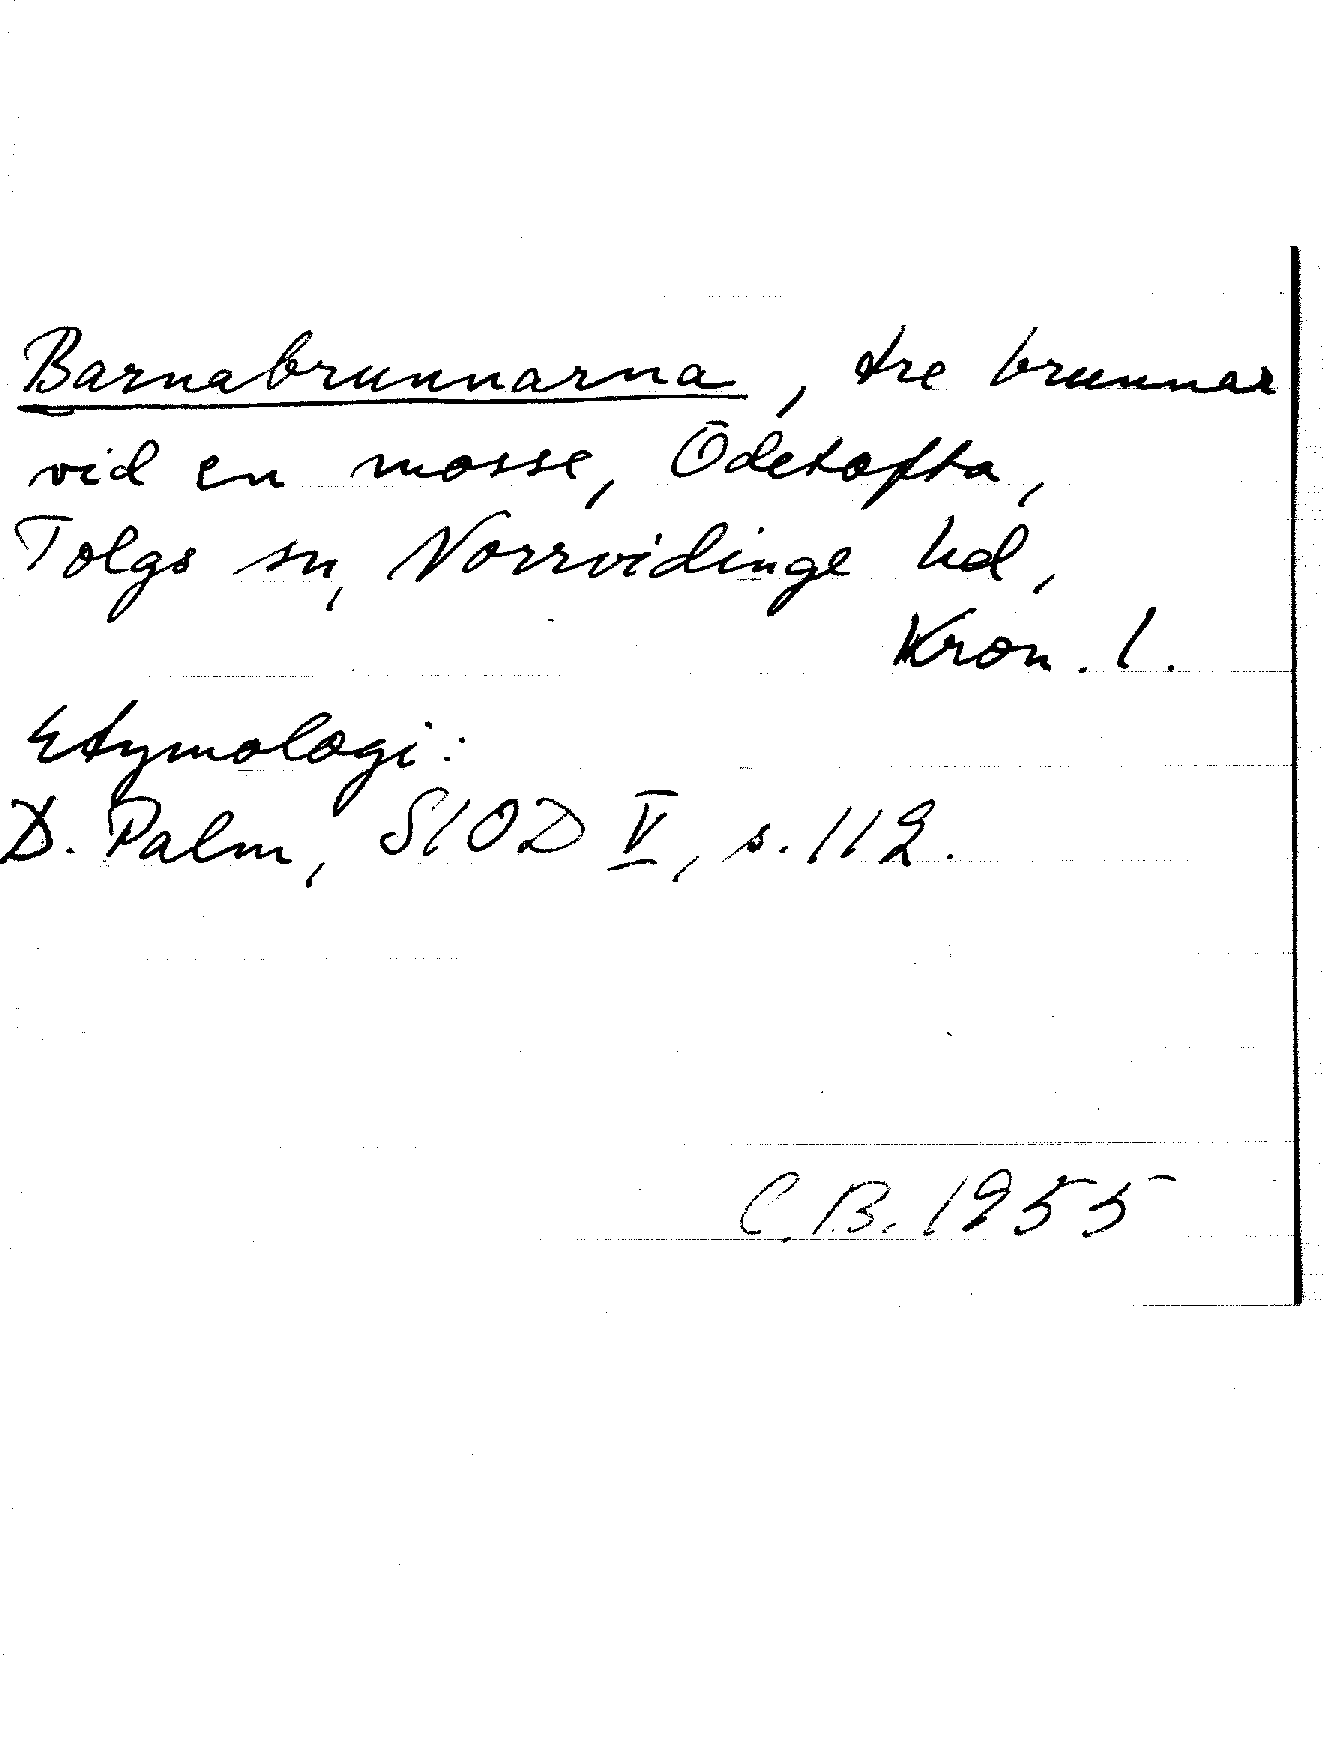 Barnabrunnarna, tre brunnar
vid en mosse, Ödetofta,
Tolgs sn, Norrvidinge hd,
Kron. l.
Etymologi:
D. Palm, SIOD V, s. 112.
C.B. 1955